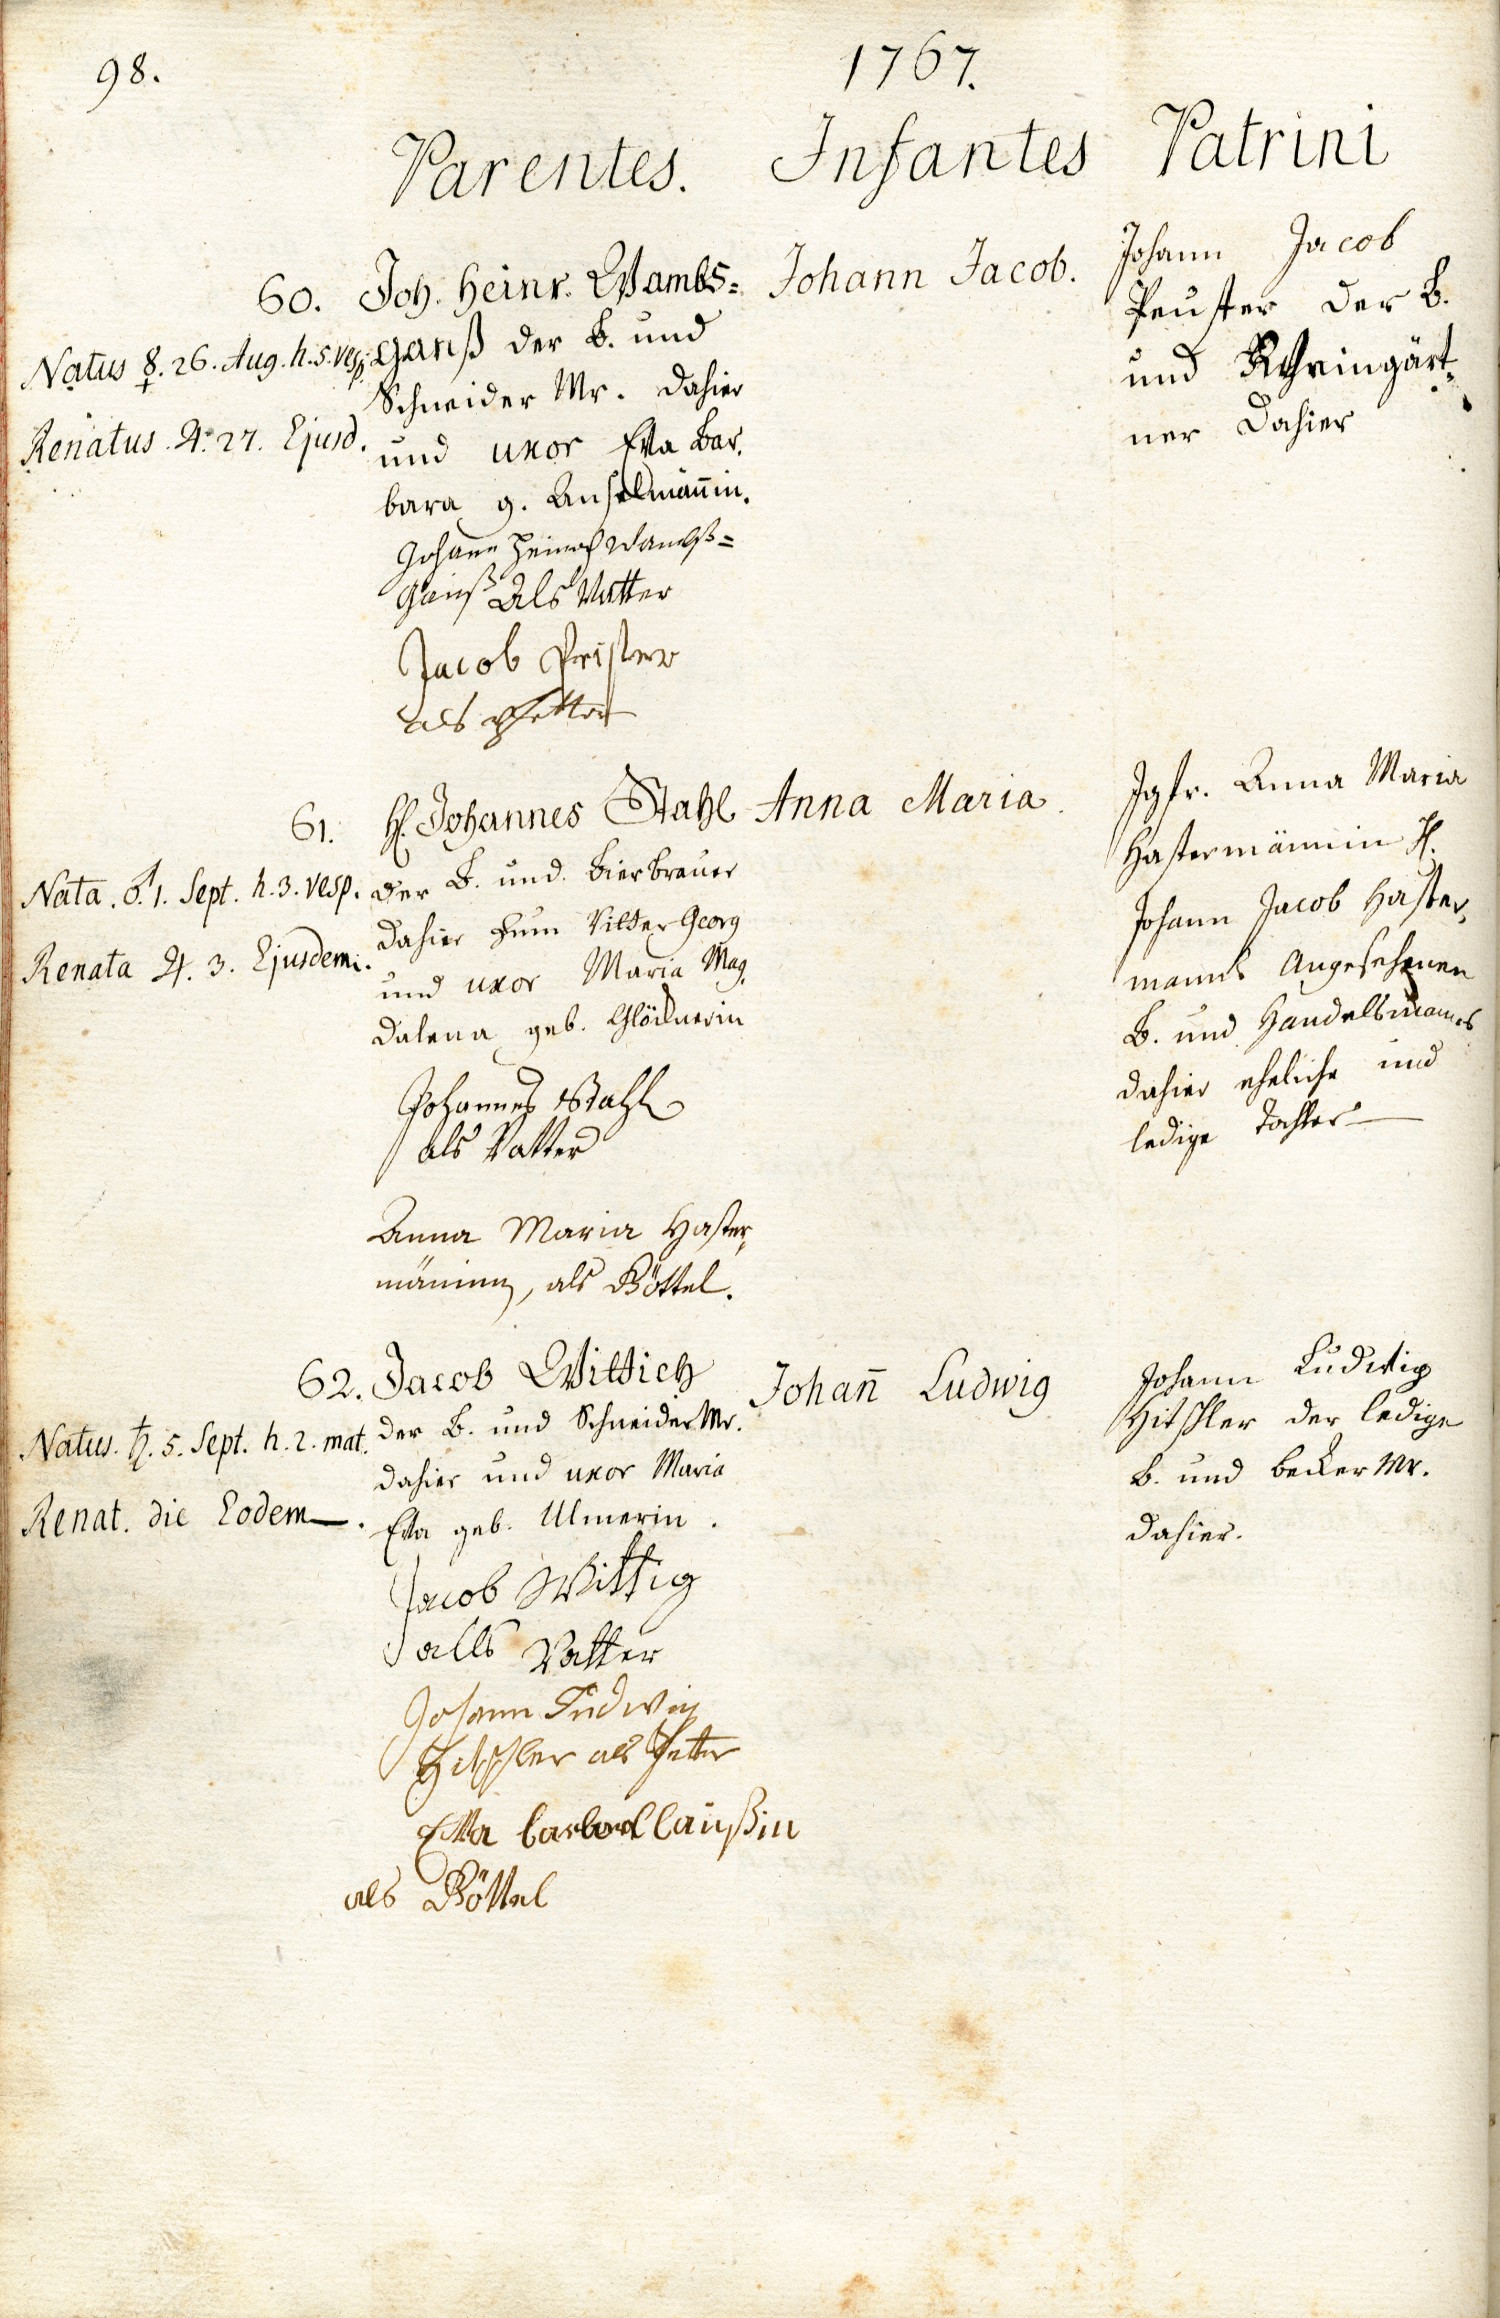 98.
1767.
Parentes. Infantes Patrini
60. Joh. Heinr. Wambs=
ganß der B. und
Schneider Mr. dahier
und uxor Eva Bar,
bara g. Anselmäñin.
Natus ☿. 26. Aug. h. 5. vesp.
Renatus ♃. 27. Ejusd.
Johann Heinrich Wambß=
ganß Als Vatter
Jacob
als Pfetter
Johann Jacob.
Johann Jacob
Peuster der B.
und Rhringärt=
ner dahier
61. H. Johannes Stahl
der B. und Bierbrauer
dahier zum Ritter Georg
und uxor Maria Mag,
dalena geb. Glöcknerin
Nata. ♂. 1. Sept. h. 3. vesp.
Renata ♃. 3. Ejusdem.
Johannes Stahl
als Vatter
Anna Maria Haster,
männin, als Göttel.
Anna Maria.
Jgfr. Anna Maria
Hastermännin H.
Johann Jacob Haster,
manns Angesehenen
B. und Handelsmanns
dahier eheliche und
ledige Tochter
62. Jacob Wittich
der B. und Schneider Mr.
dahier und uxor Maria
Eva geb. Ulmerin.
Natus. ♄. 5. Sept. h. 2. mat.
Renat. die Eodem.
Jacob Wittig
alls Vatter
Johann Ludwig
Hitschler als Petter
Eva
als Göttel
Johañ Ludwig
Johann Ludwig
Hitschler der ledige
B. und Becker Mr.
dahier.